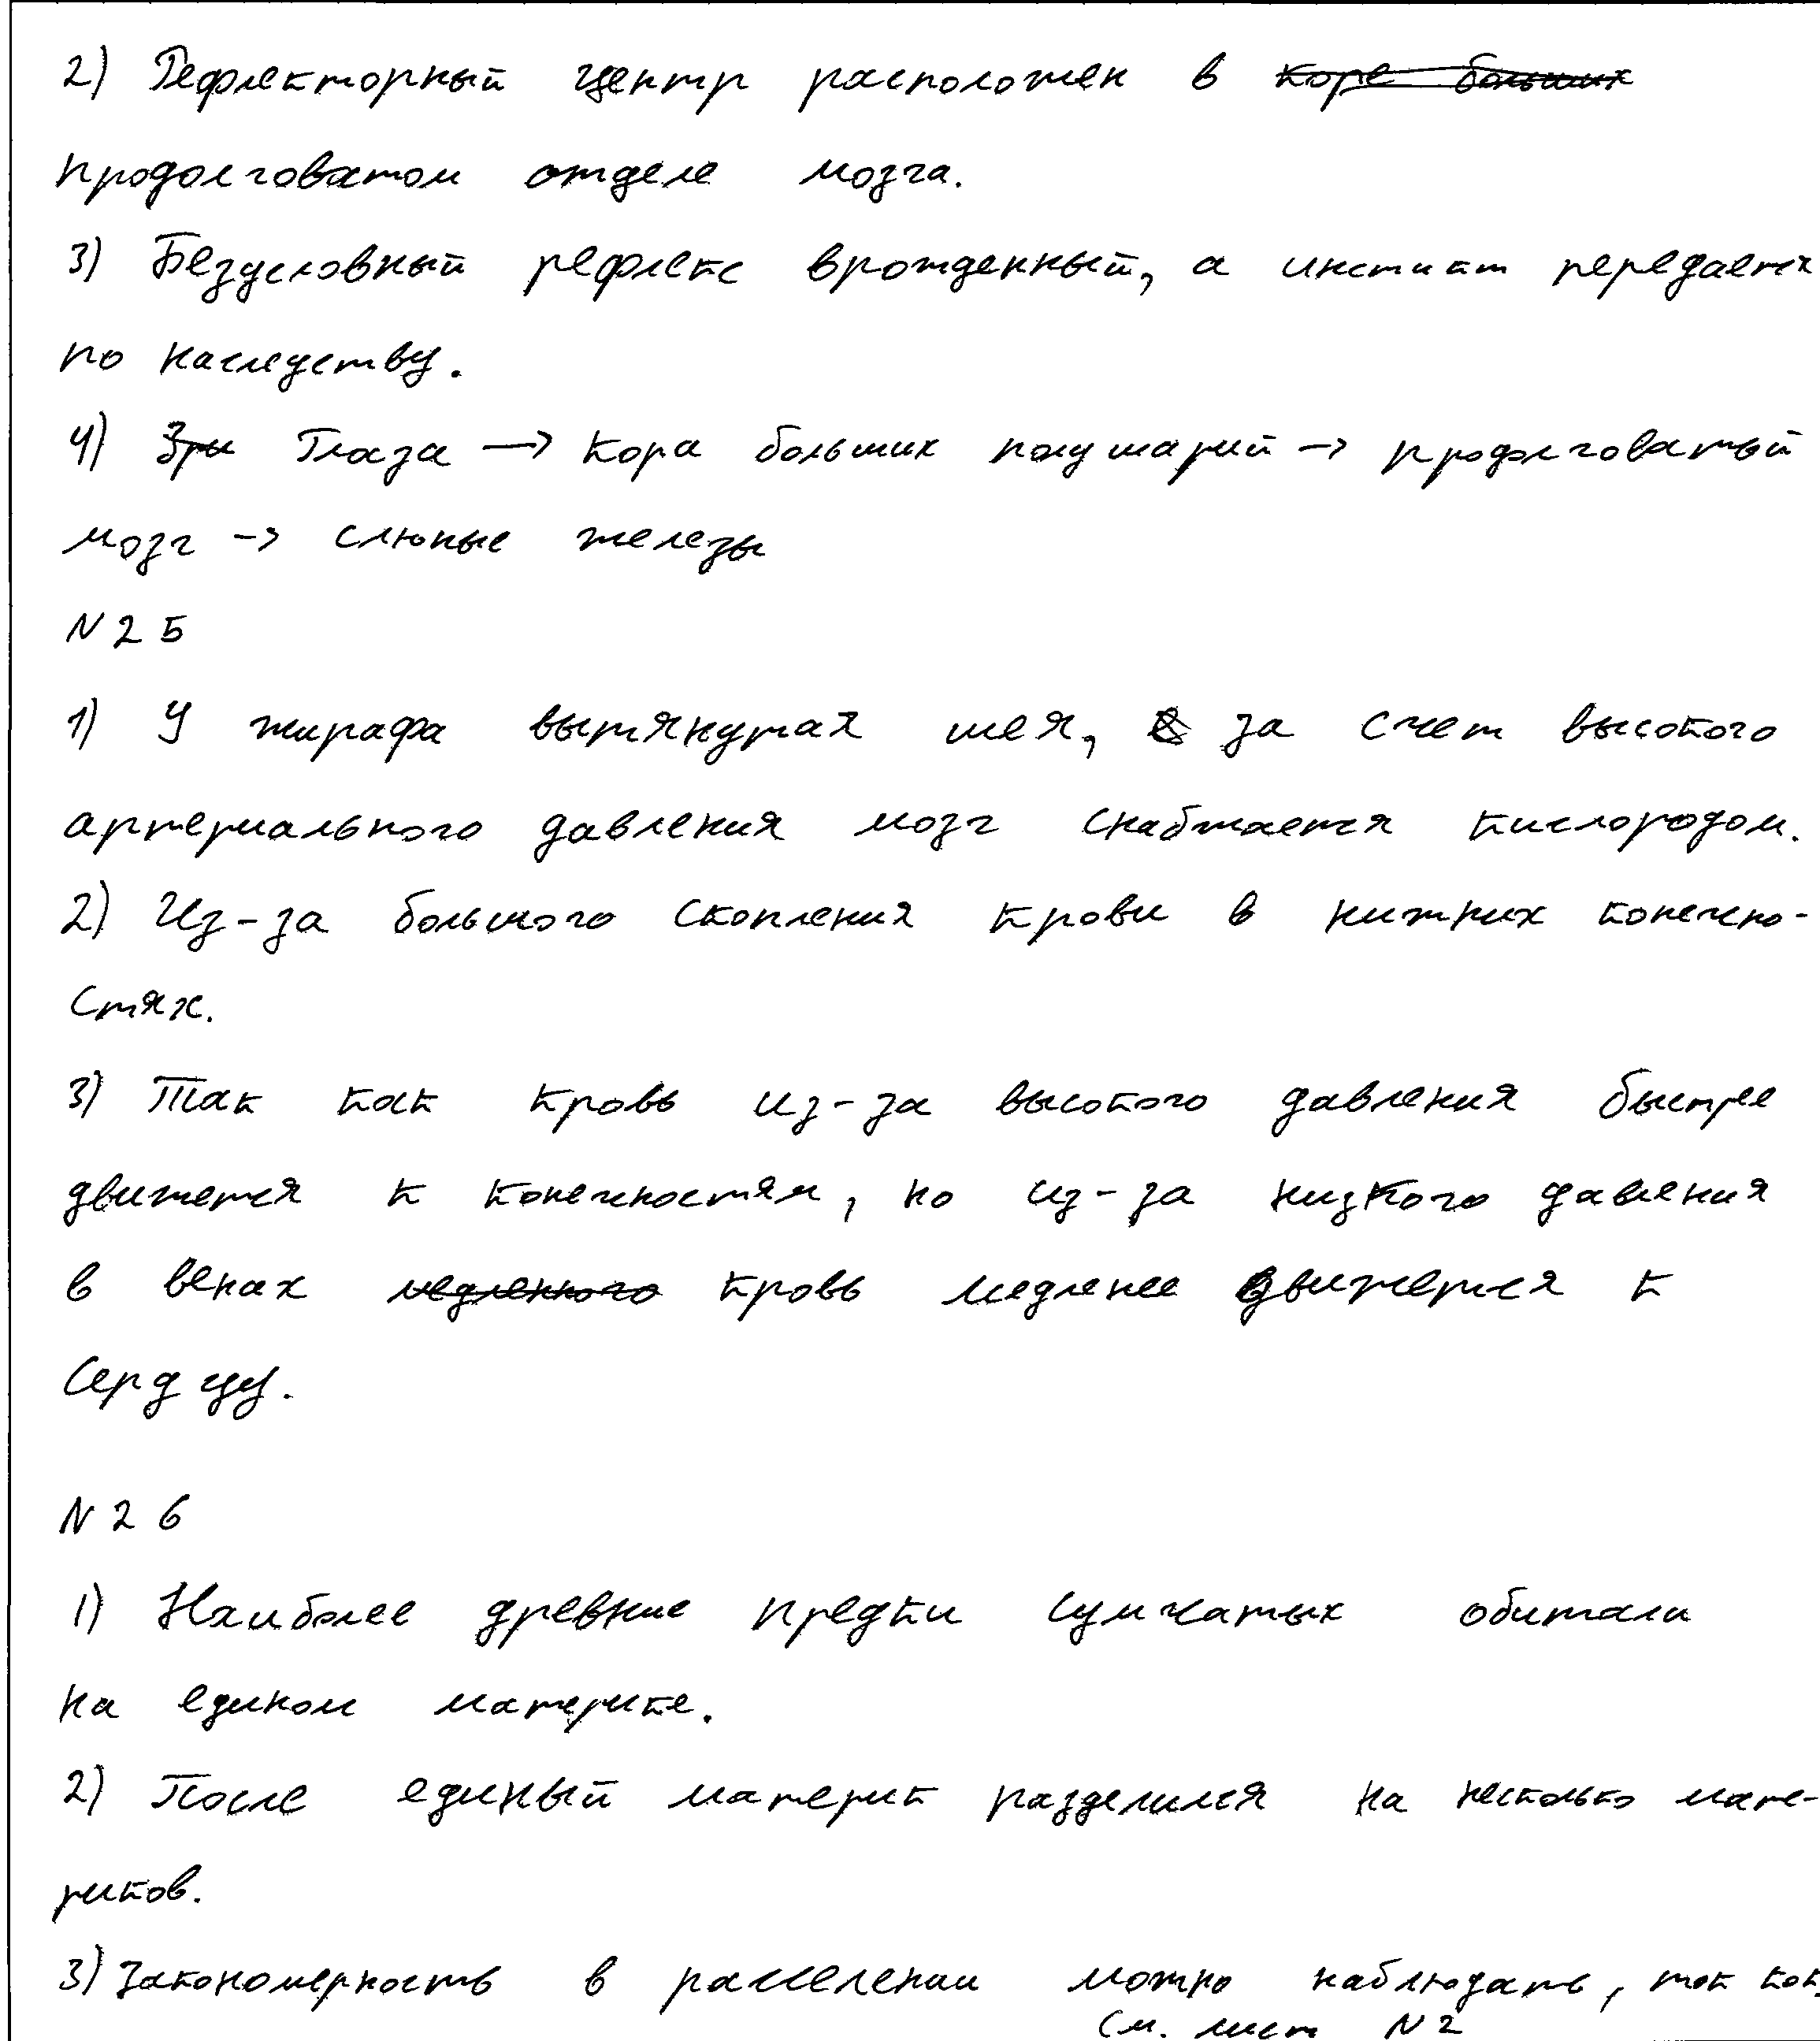 2) Рефлекторный центр расположен в коре больших
продолговатом отделе мозга.
3) Безусловный рефлекс врожденный, а инстикт передается
по наследству.
4) Зри Глаза → кора больших полушарий → продолговатый
мозг → слюные железы
N 25
1) У жирафа вытянутая шея, за счет высокого
артериального давления мозг снабжается кислородом.
2) Из-за большого скопления крови в нижних конечно-
стях.
3) Так как кровь из-за высокого давления быстрее
движется к конечностям, но из-за низкого давления
в венах медленного кровь медленее движется к
сердцу.
N 26
1) Наиболее древние предки сумчатых обитали
на едином материке.
2) После единый материк разделился на несколько мате-
риков.
3) Закономерность в расселении можно наблюдать, так как,
См. лист N 2